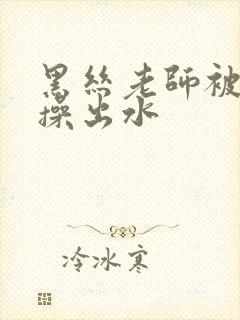 黑丝老師被
操出水
冷冰寒